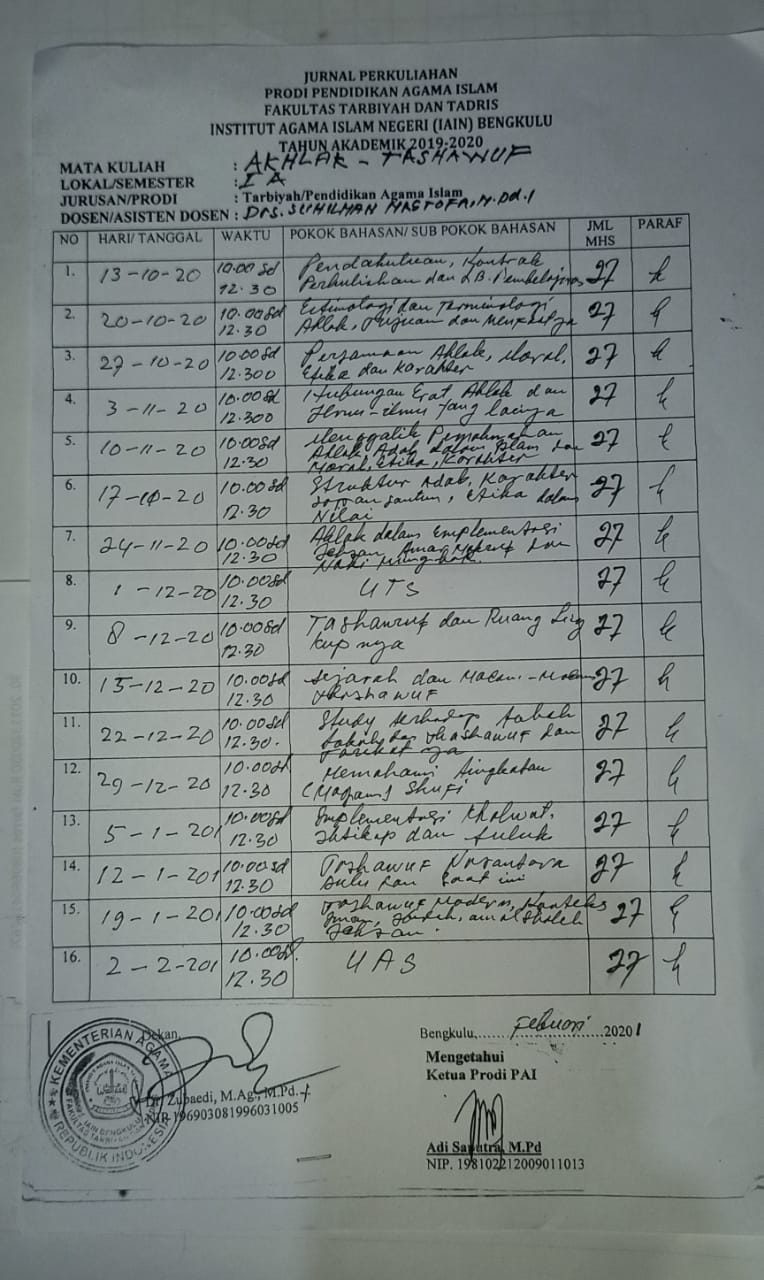 JURNAL PERKULIAHAN
PRODI PENDIDIKAN AGAMA ISLAM
FAKULTAS TARBIYAH DAN TADRIS
INSTITUT AGAMA ISLAM NEGERI (IAIN) BENGKULU
TAHUN AKADEMIK 2019-2020
MATA KULIAH : AKHLAK - TASHAWUF
LOKAL/SEMESTER : I A
JURUSAN/PRODI : Tarbiyah/Pendidikan Agama Islam
DOSEN/ASISTEN DOSEN : Drs. SUHILMAN MASTOFA, M.Pd.I
NO HARI/ TANGGAL WAKTU POKOK BAHASAN/ SUB POKOK BAHASAN JML MHS PARAF
1. 13-10-20 10.00 sd 12.30 Pendahuluan, Kontrak 27
Perkuliahan dan
2. 20-10-20 10.00 sd 12.30 Etimologi dan Terminologi 27
Ahlak, Tujuan dan
3. 27-10-20 10.00 sd 12.300 Persamaan Ahlak, Moral, 27
Etika dan Karakter
4. 3-11-20 10.00 sd 12.300 Hubungan Erat Ahlak dan 27
Ilmu-ilmu yang lainya
5. 10-11-20 10.00 sd 12.30 27
Ahlak, Adab dalam Islam dan
Moral, Etika, Karakter
6. 17-10-20 10.00 sd 12.30 Struktur Adab, Karakter 27
sopan santun, Etika dalam
Nilai
7. 24-11-20 10.00 sd 12.30 Ahlak dalam Emplementasi 27
8. 1-12-20 10.00 sd 12.30 UTS 27
9. 8-12-20 10.00 sd 12.30 Tashawuf dan Ruang Ling 27
kupnya
10. 15-12-20 10.00 sd 12.30 Sejarah dan Macam-Macam 27
11. 22-12-20 10.00 sd 12.30. Study terhadap
12. 29-12-20 10.00 sd 12.30 Memahami tingkatan 27
(Maqam) Shufi
13. 5-1-201 10.00 sd 12.30 Implementasi Kholwat, 27
dan suluk
14. 12-1-201 10.00 sd 12.30 Tashawuf Nusantara 27
dulu dan saat ini
15. 19-1-201 10.00 sd 12.30 Tashawuf Modern, 27
Iman,
16. 2-2-201 10.00 sd. 12.30 UAS 27
Dekan,
Dr. Zubaedi, M.Ag., M.Pd.
NIP 196903081996031005
KEMENTERIAN AGAMA
REPUBLIK INDONESIA
IAIN BENGKULU
Bengkulu, Februari 2021
Mengetahui
Ketua Prodi PAI
Adi Saputra, M.Pd
NIP. 198102212009011013